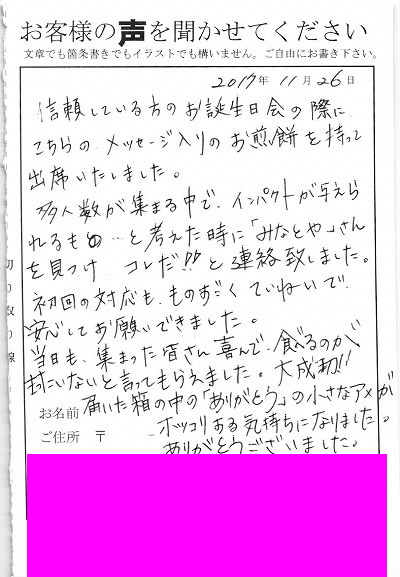 お客様の声を聞かせてください
文章でも箇条書きでもイラストでも構いません。ご自由にお書き下さい。
2017年 11月 26日
信頼している方のお誕生日会の際に
こちらの メッセージ入りの お煎餅を持って
出席いたしました。
多人数が集まる中で、インパクトが与えら
れるもの…と考えた時に「みなとや」さん
を見つけ コレだ!!と連絡致しました。
初回の対応も、ものすごく ていねいで
安心してお願いできました。
当日も、集まった皆さん喜んで、食べるのが
もったいないと言ってもらえました。大成功!!
届いた箱の中の「ありがとう」の小さなアメが
ホッコリある気持ちになりました。
ありがとうございました。
お名前
ご住所 〒
切り取り線